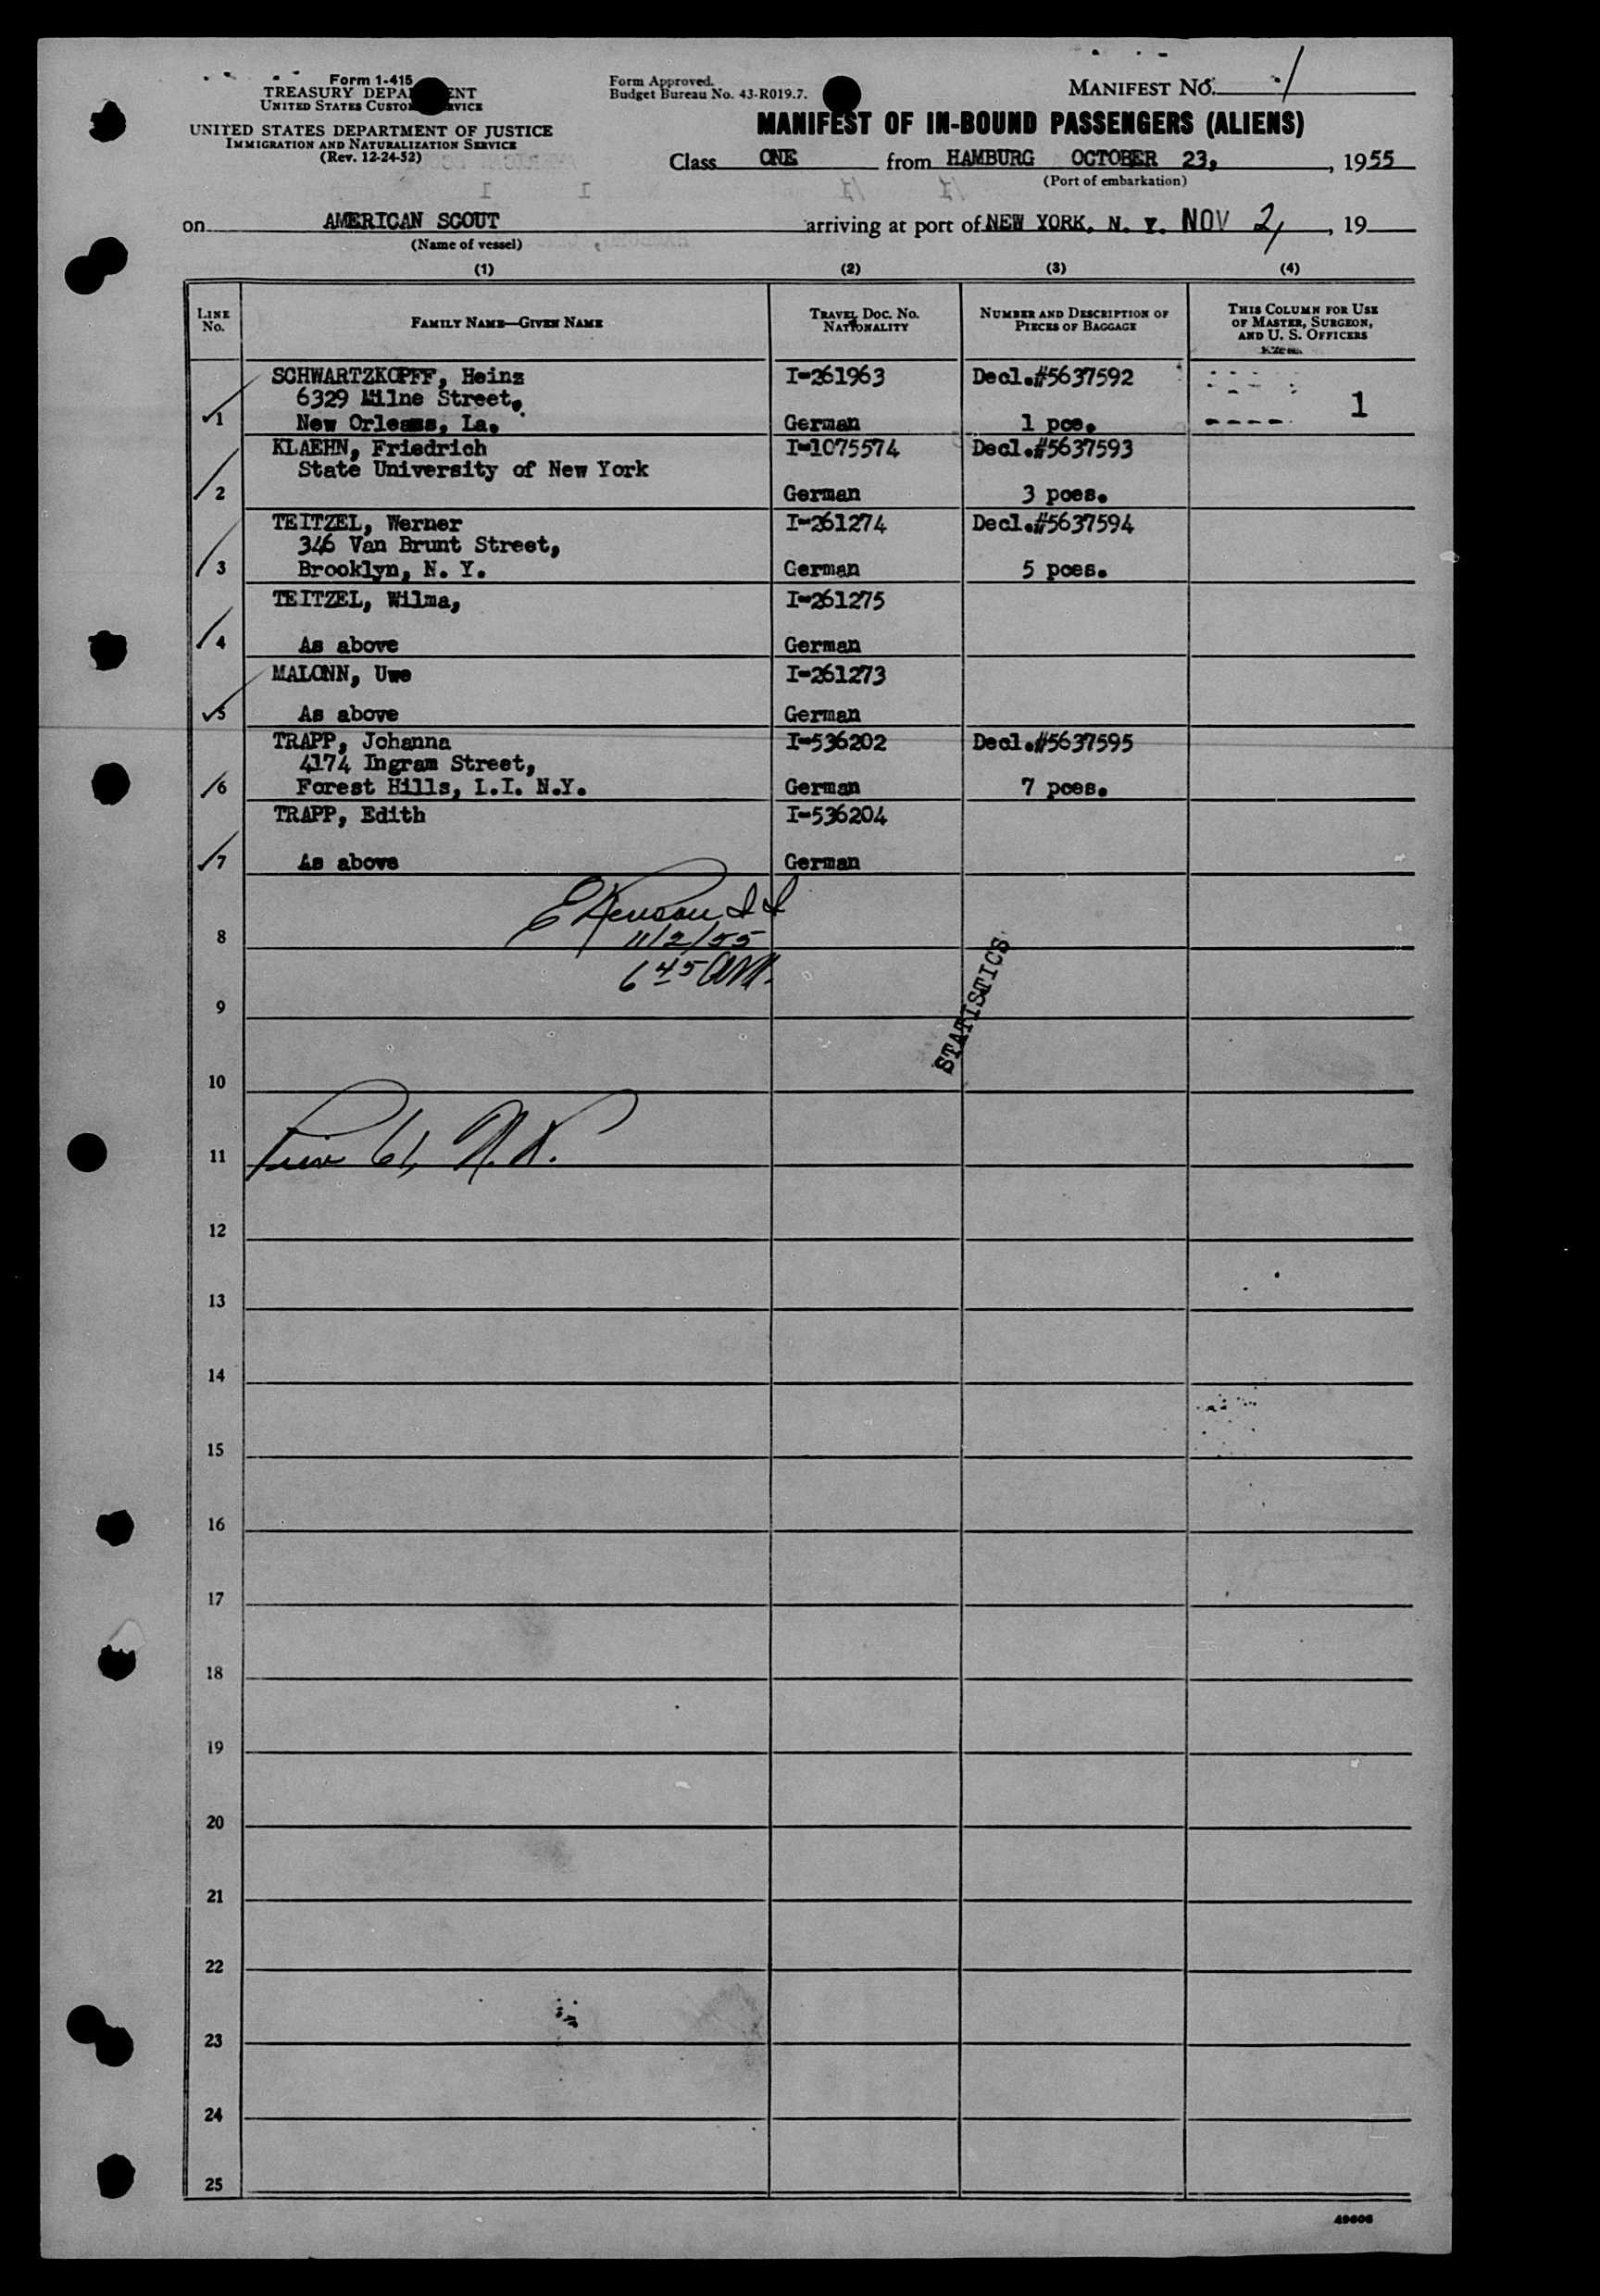 Form 1-415
TREASURY DEPA ENT
UNITED STATES CUSTO RVICE
UNITED STATES DEPARTMENT OF JUSTICE
IMMIGRATION AND NATURALIZATION SERVICE
(Rev. 12-24-52)
Form Approved.
Budget Bureau No. 43-R019.7.
MANIFEST NO. 1
MANIFEST OF IN-BOUND PASSENGERS (ALIENS)
Class ONE from HAMBURG OCTOBER 23, , 1955
(Port of embarkation)
on AMERICAN SCOUT arriving at port of NEW YORK, N. Y. NOV 2, , 19
(Name of vessel)
(1) (2) (3) (4)
LINE No. FAMILY NAME—GIVEN NAME TRAVEL DOC. NO. NATIONALITY NUMBER AND DESCRIPTION OF PIECES OF BAGGAGE THIS COLUMN FOR USE OF MASTER, SURGEON, AND U. S. OFFICERS
SCHWARTZKOPFF, Heinz I-261963 Decl.#5637592
6329 Milne Street, 1
1 New Orleans, La. German 1 pce.
KLAEHN, Friedrich I-1075574 Decl.#5637593
State University of New York
2 German 3 pces.
TEITZEL, Werner I-261274 Decl.#5637594
346 Van Brunt Street,
3 Brooklyn, N. Y. German 5 pces.
TEITZEL, Wilma, I-261275
4 As above German
MALONN, Uwe I-261273
5 As above German
TRAPP, Johanna I-536202 Decl.#5637595
4174 Ingram Street,
6 Forest Hills, L.I. N.Y. German 7 pces.
TRAPP, Edith I-536204
7 As above German
8 11/2/55
6 45 AM.
9
STATISTICS
10
11 61, N.
12
13
14
15
16
17
18
19
20
21
22
23
24
25
49606